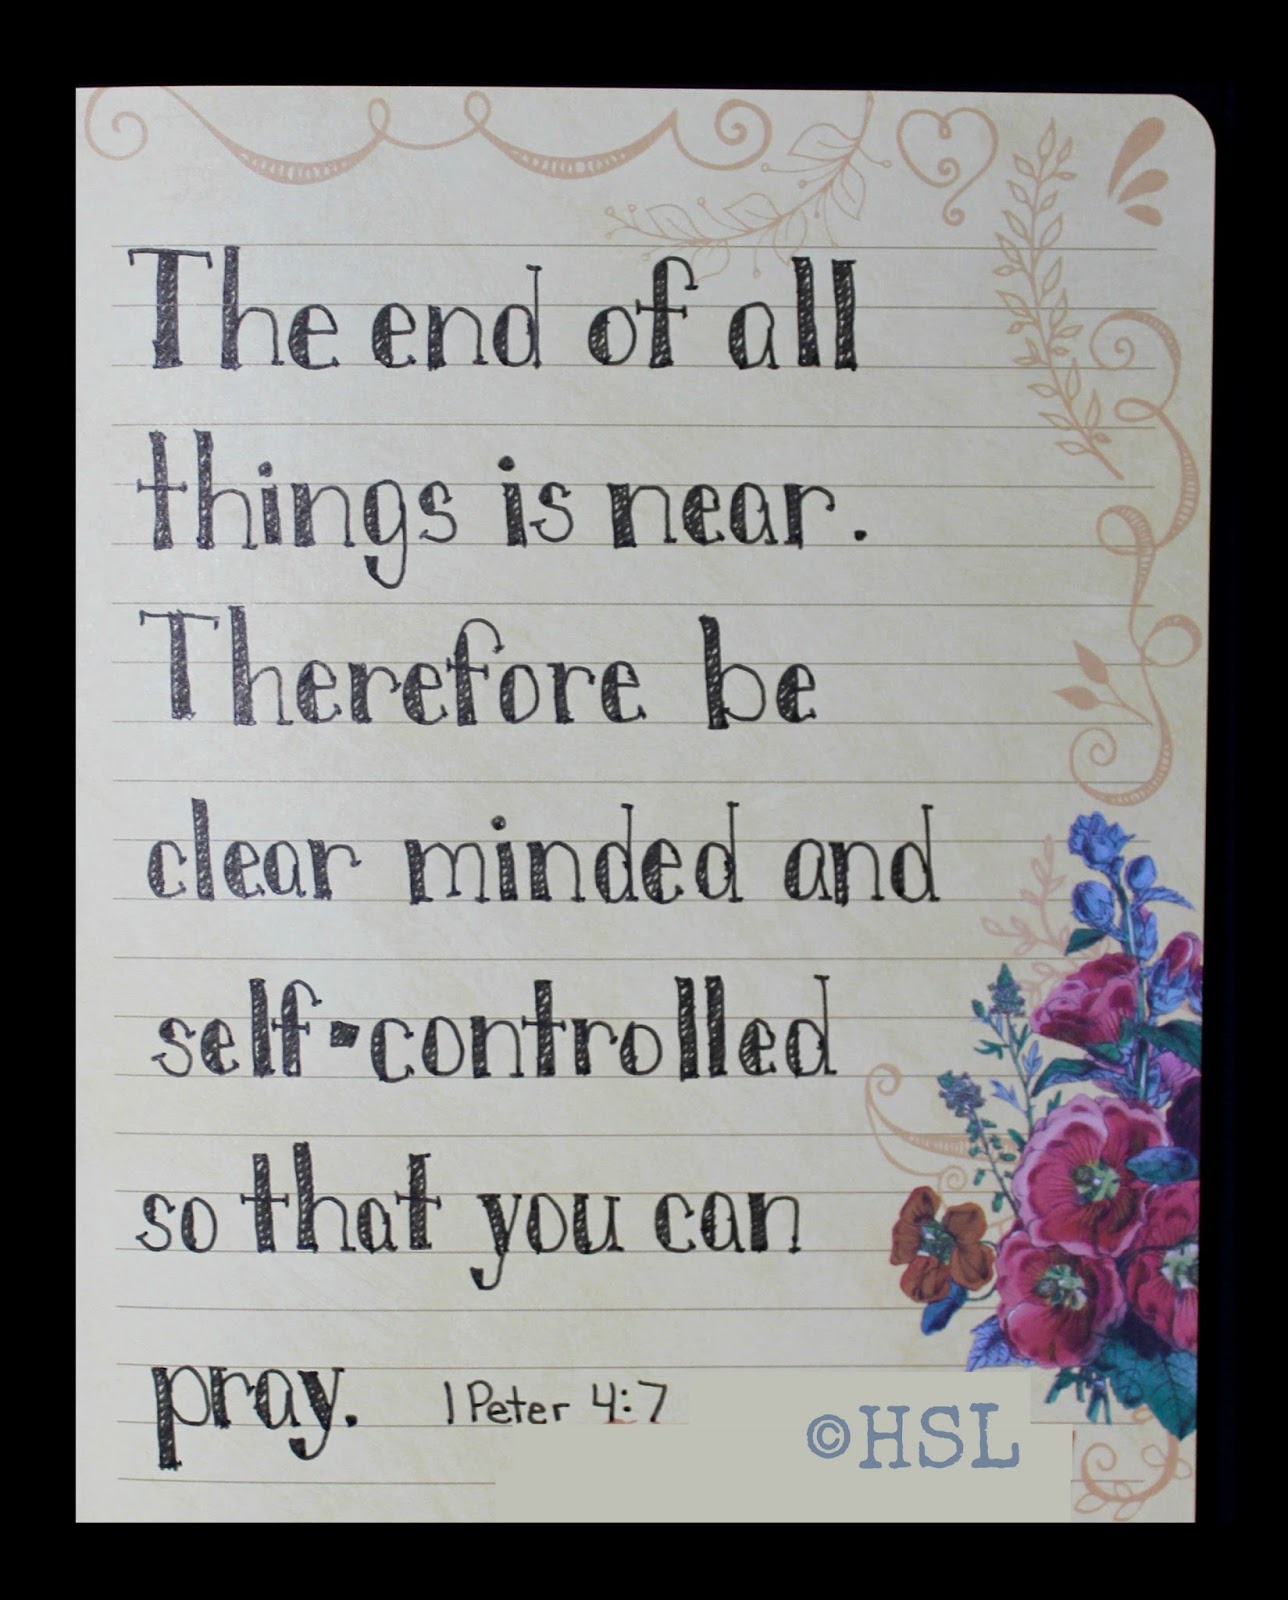 The end of all
things is near.
Therefore be
clear minded and
self-controlled
so that you can
pray. 1 Peter 4:7
©HSL